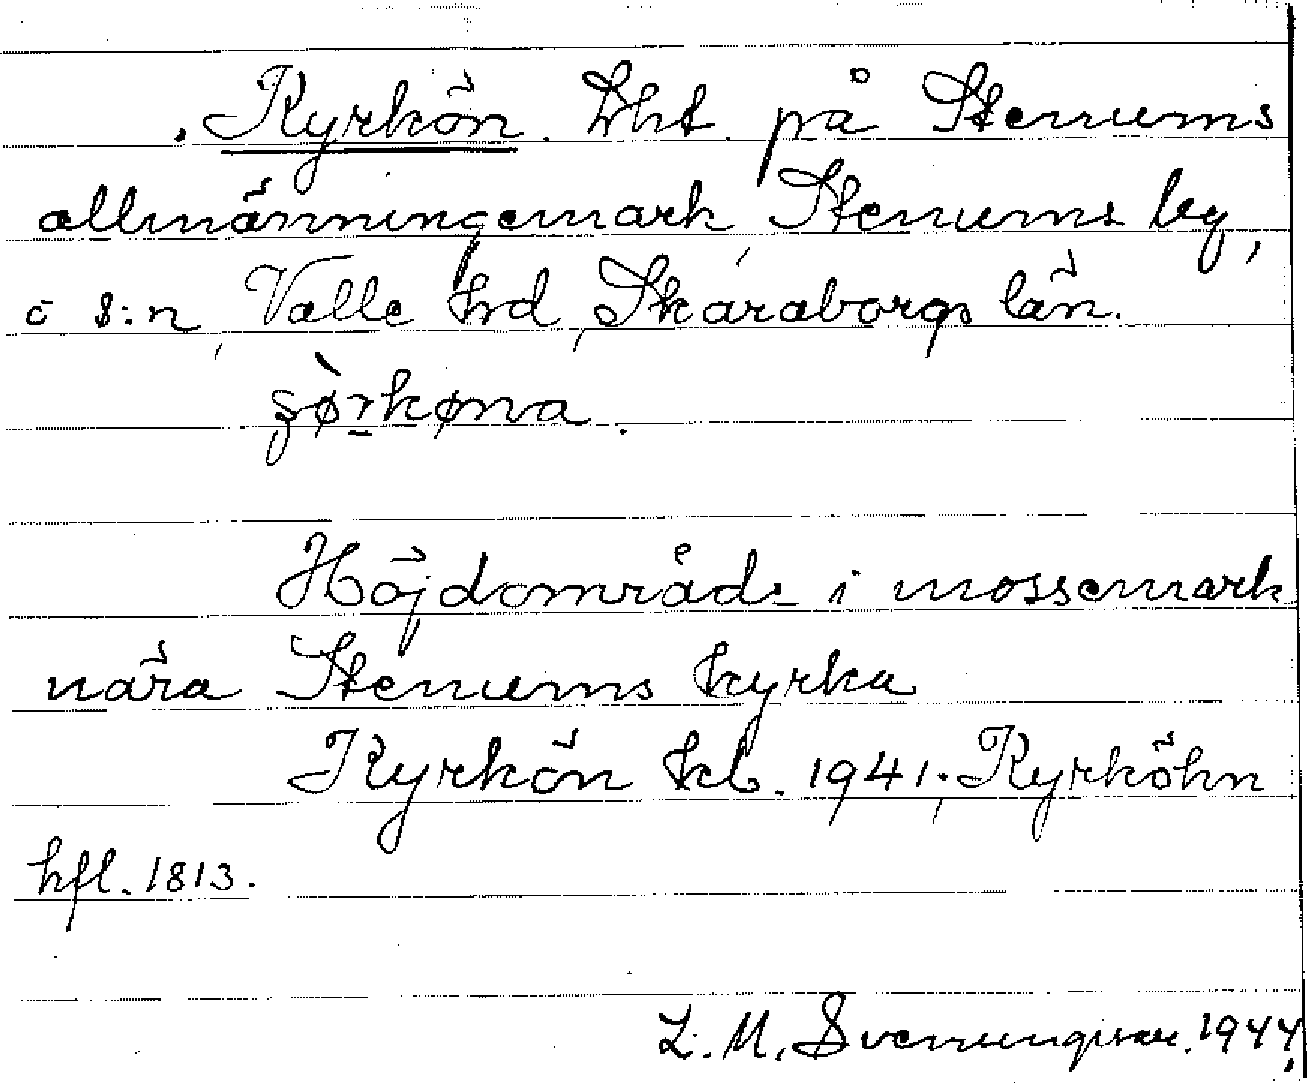 Kyrkön. Lht. på Stenums
allmänningemark, Stenums by,
o s:n, Valle hrd, Skaraborgs län.
Höjdområde i mossemark
nära Stenums kyrka
Kyrkön kb. 1941; Kyrköhn
hfl. 1813.
L. M. Svenungsson. 1944,